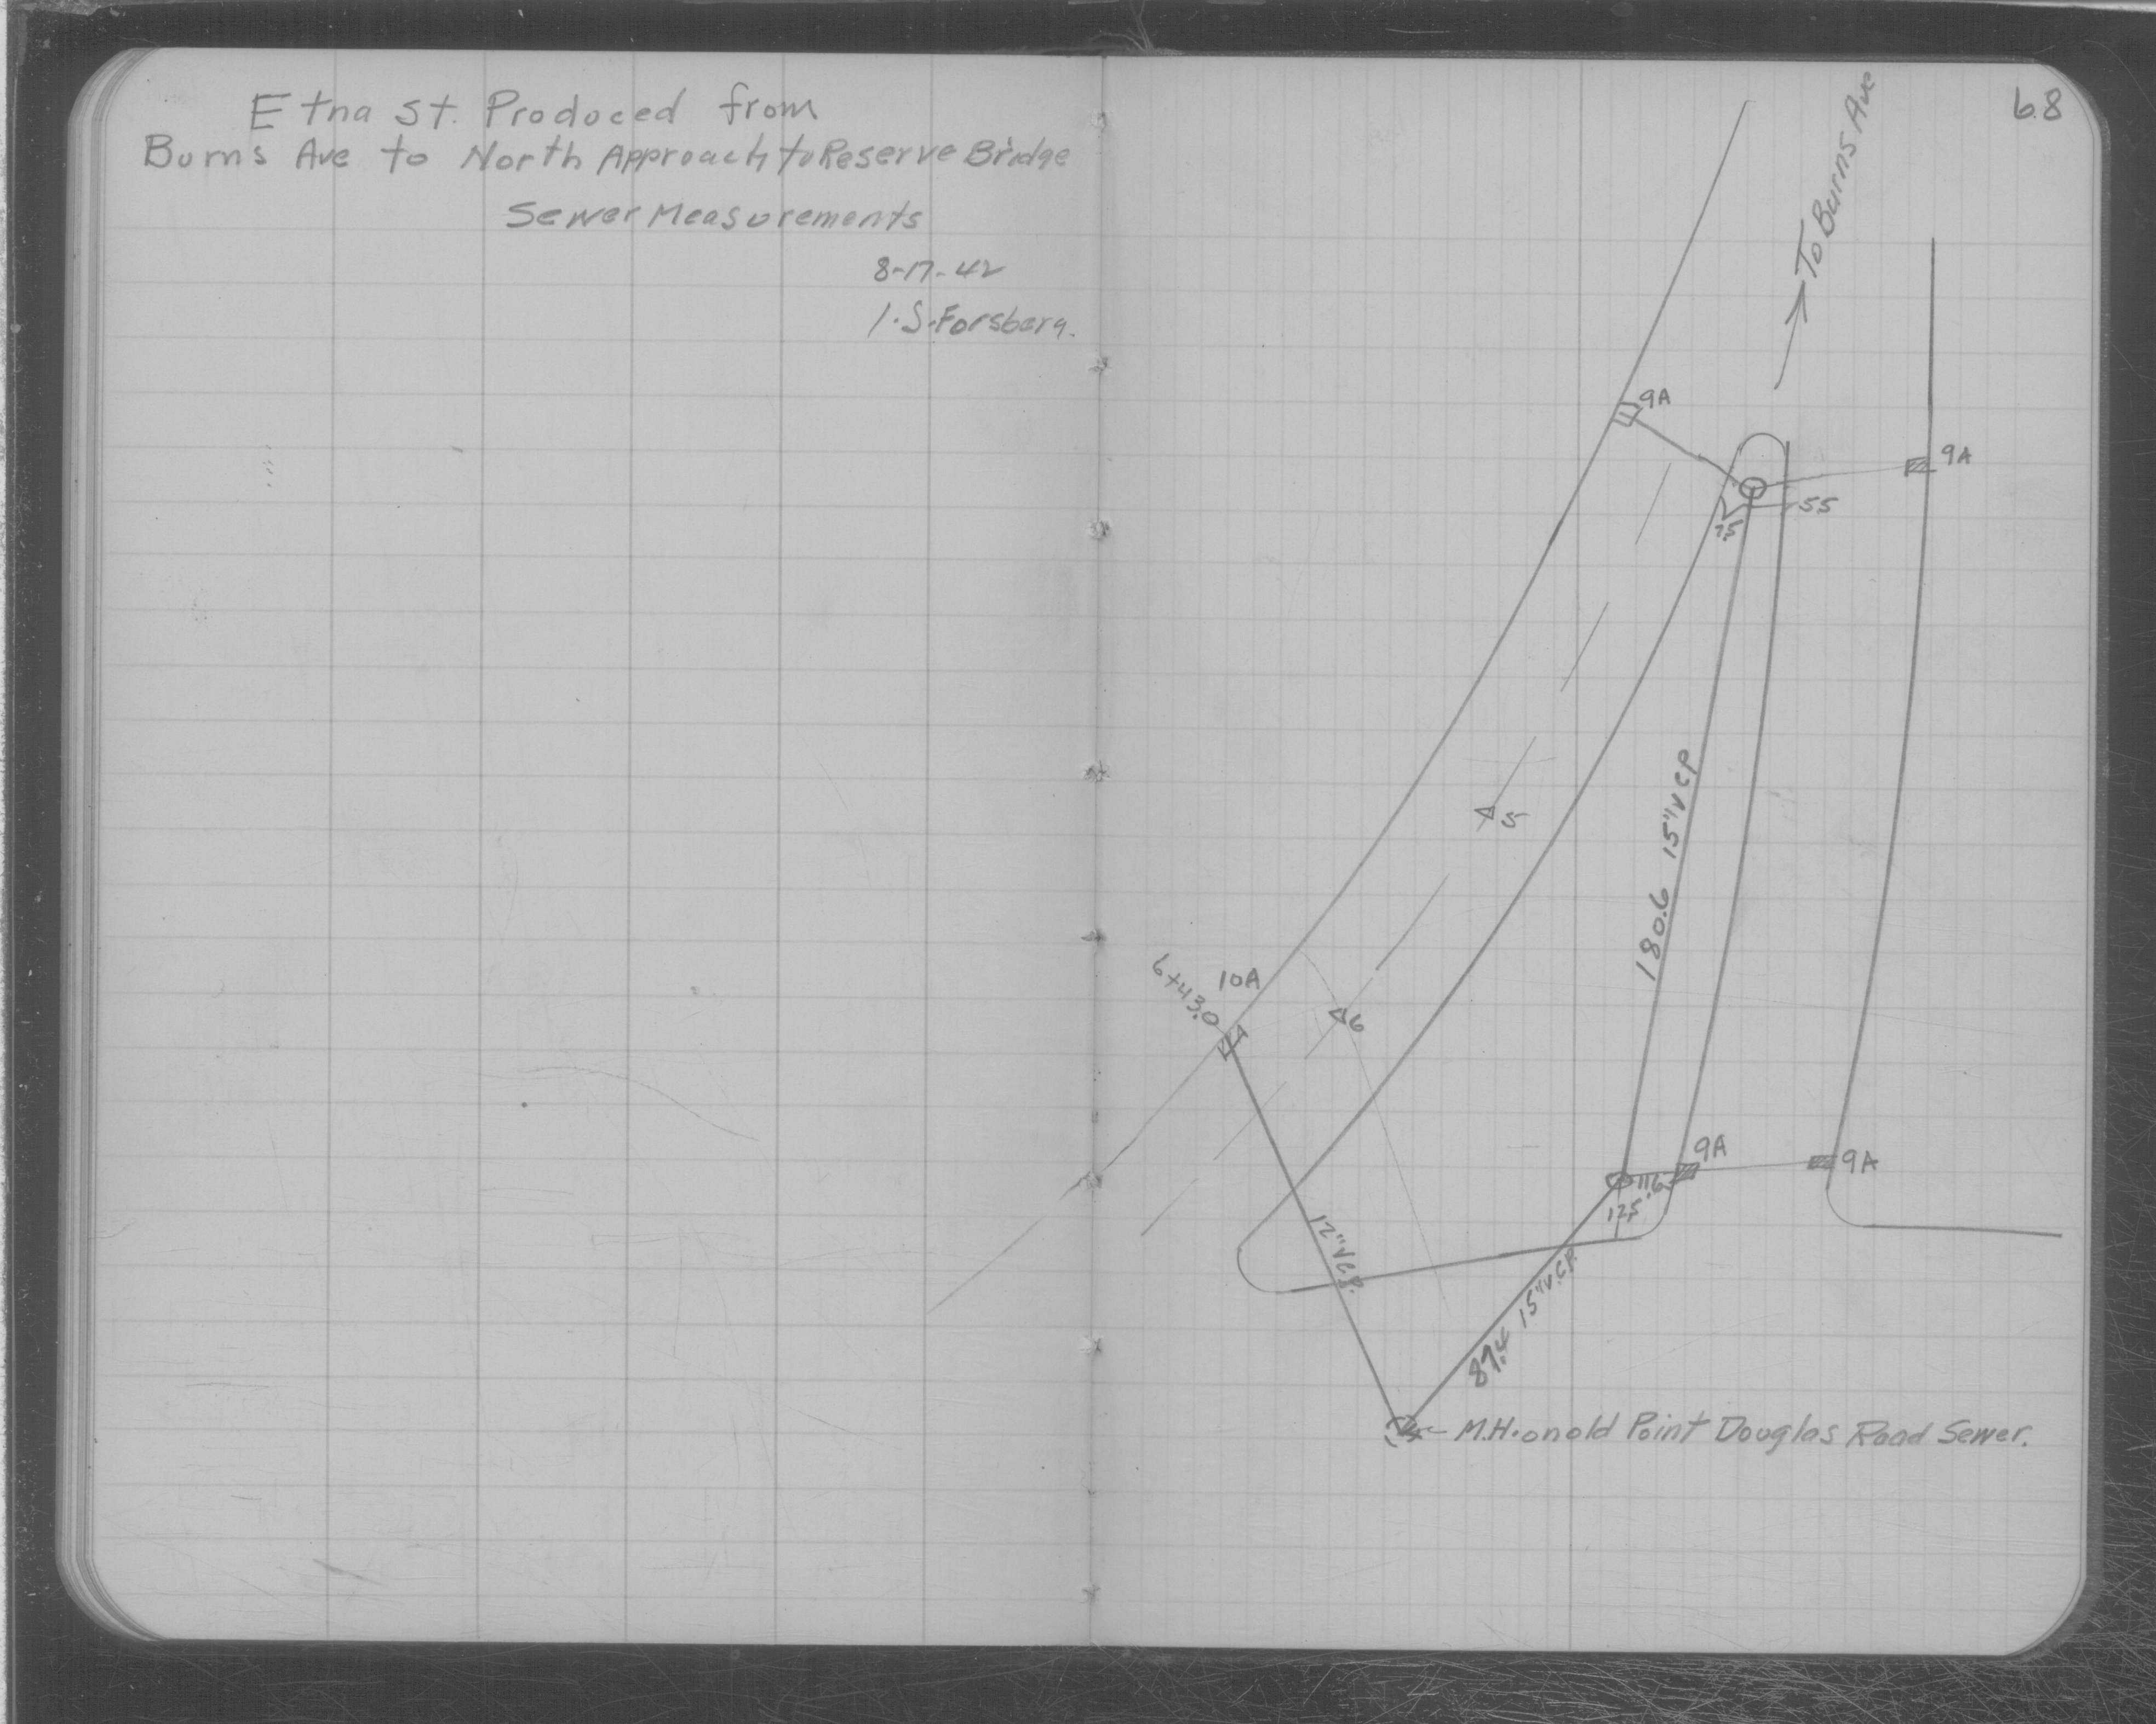 Etna St. Produced from
Burns Ave to North Approach to Reserve Bridge
Sewer Measurements
8-17-42
I.S. Forsberg.
68
To Burns Ave
9A
9A
55
75
5
180.6 15" VCP
6+43.0
10A
6
9A
9A
11.6
12.5
12" V.C.P.
89.4 15" V.C.P.
M.H. on old Point Douglas Road Sewer.